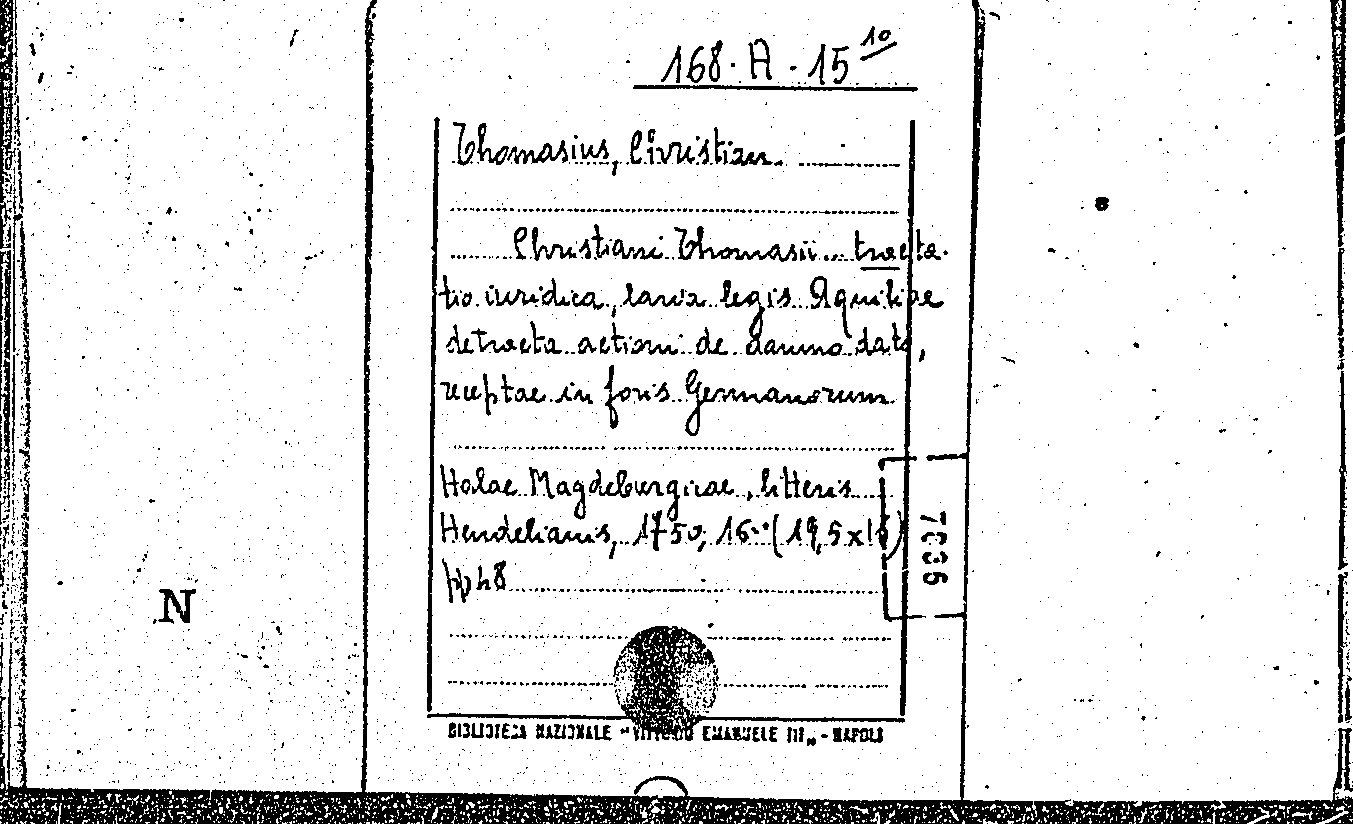 168. A. 15 10
Thomasius, Christian.
Christiani Thomasii... tracta-
tio iuridica, larva legis Aquiliae
detracta actioni de damno dato,
receptae in foris Germanorum
Halae Magdeburgicae, litteris
Hendelianis, 1750, 16° (19,5x
pp 48
7636
N
BIBLIOTECA NAZIONALE "VITTORIO EMANUELE III" - NAPOLI